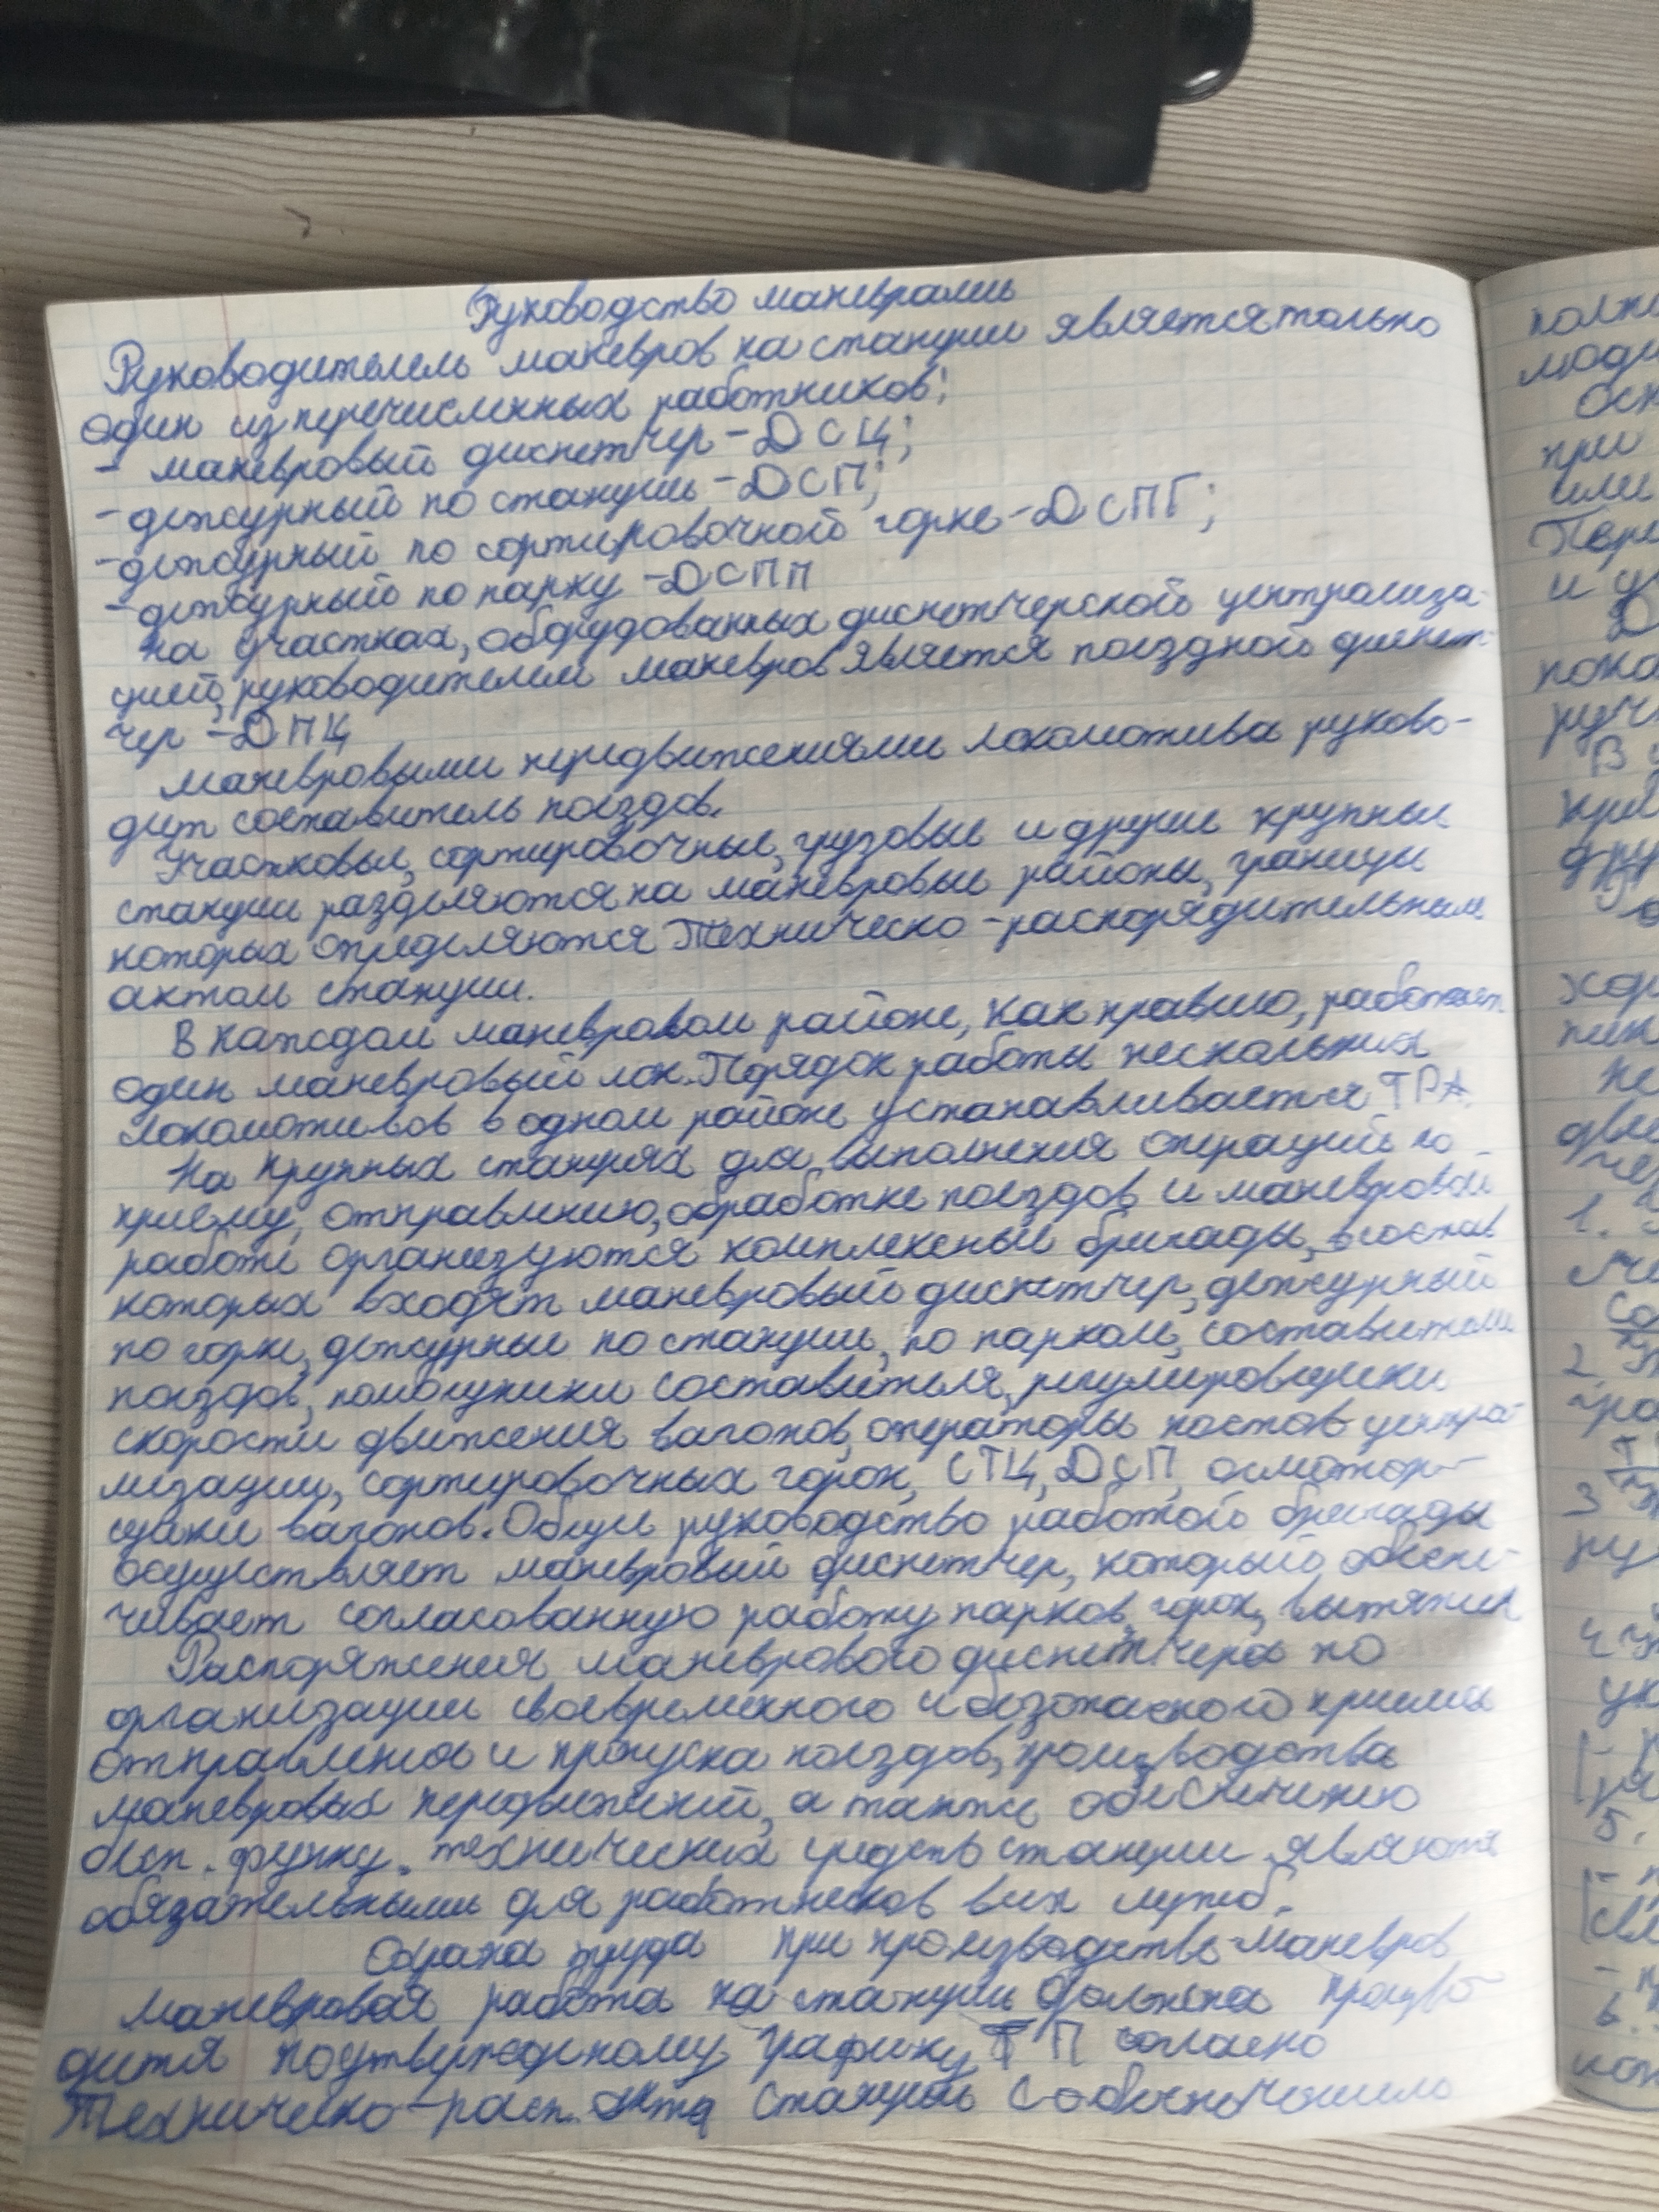 Руководство маневрами
Руководителель маневров на станции является только
один из перечисленных работников:
- маневровый диспетчер - ДСЦ;
- дежурный по станции - ДСП;
- дежурный по сортировочной горке - ДСПГ;
- дежурный по парку - ДСПП
На участках, оборудованных диспетчерской централиза-
цией, руководителем маневров является поездной диспет-
чер - ДНЦ
Маневровыми передвижениями локомотива руково-
дит составитель поездов.
Участковые, сортировочные, грузовые и другие крупные
станции разделяются на маневровые районы, границы
которых определяются Техническо-распорядительным
актом станции.
В каждом маневровом районе, как правило, работает
один маневровый лок. Порядок работы нескольких
локомотивов в одном районе устанавливается ТРА.
На крупных станциях для выполнения операций по
приему, отправлению, обработке поездов и маневровой
работе организуются комплексные бригады, в состав
которых входят маневровый диспетчер, дежурный
по горке, дежурные по станции, по паркам, составители
поездов, помощники составителя, регулировщики
скорости движения вагонов, операторы постов центра-
лизации, сортировочных горок, СТЦ, ДСП, осмотор-
щики вагонов. Общее руководство работой бригады
осуществляет маневровый диспетчер, который обеспе-
чивает согласованную работу парков, горок, вытяжек
Распоряжения маневрового диспетчера по
организации своевременного и безопасного приема
отправления и пропуска поездов, производства
маневровых передвижений, а также обеспечению
бесп. функц. технических средств станции являются
обязательными для работников всех служб.
Охрана труда при производстве маневров
Маневровая работа на станции должна произво-
дится по утвержденному графику ТП согласно
Техническо-расп. акта станции с
полн
люди
осн
при
или
Пере
и у
Д
пока
ручн
В
кри
дру
хор
пик
не
дви
чер
1.
2.
3
4
ук
5.
- п
6.